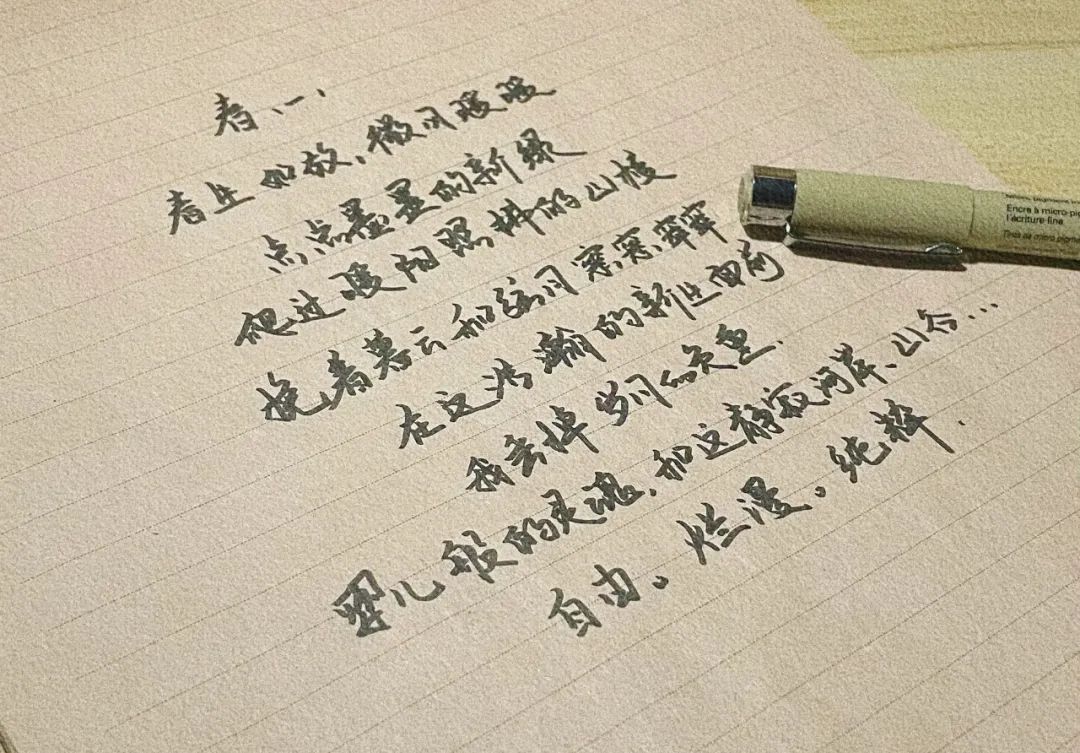 春、一、
春生如放，微风暖暖
点点墨墨的新绿
爬过暖阳照耕的山坡
挽着暮云和弦月窸窸窣窣
在这浩瀚的新生面前
我丢掉岁月的矢重.
婴儿般的灵魂，和这静寂河岸、山谷...
自由。烂漫。纯粹.
Encre à micro-pi
l'écriture fine